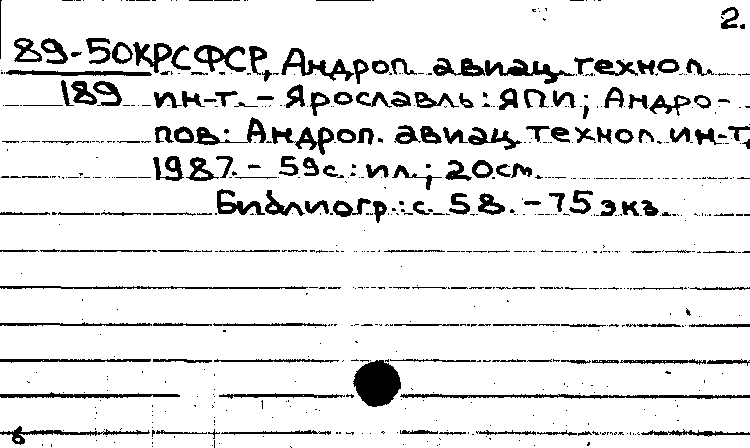 2.
89-50КРСФСР, Андроп. авиац. технол.
189 ин-т. - Ярославль: ЯПИ; Андро-
пов: Андроп. авиац. технол. ин-т,
1987. - 59с.: ил.; 20см.
Библиогр.: с. 58. - 75 экз.
6